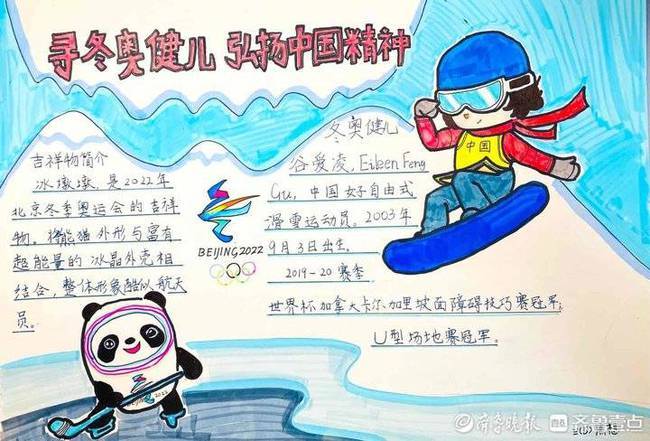 寻冬奥健儿 弘扬中国精神
吉祥物简介
冰墩墩,是2022年
北京冬季奥运会的吉祥
物。将熊猫外形与富有
超能量的冰晶外壳相
结合,整体形象酷似航天
员。
BEIJING 2022
冬奥健儿
谷爱凌,Eileen Feng
Gu,中国女子自由式
滑雪运动员。2003年
9月3日出生。
2019-20赛季
世界杯加拿大卡尔加里坡面障碍技巧赛冠军;
U型场地赛冠军。
中国
2022
齐鲁晚报
齐鲁壹点